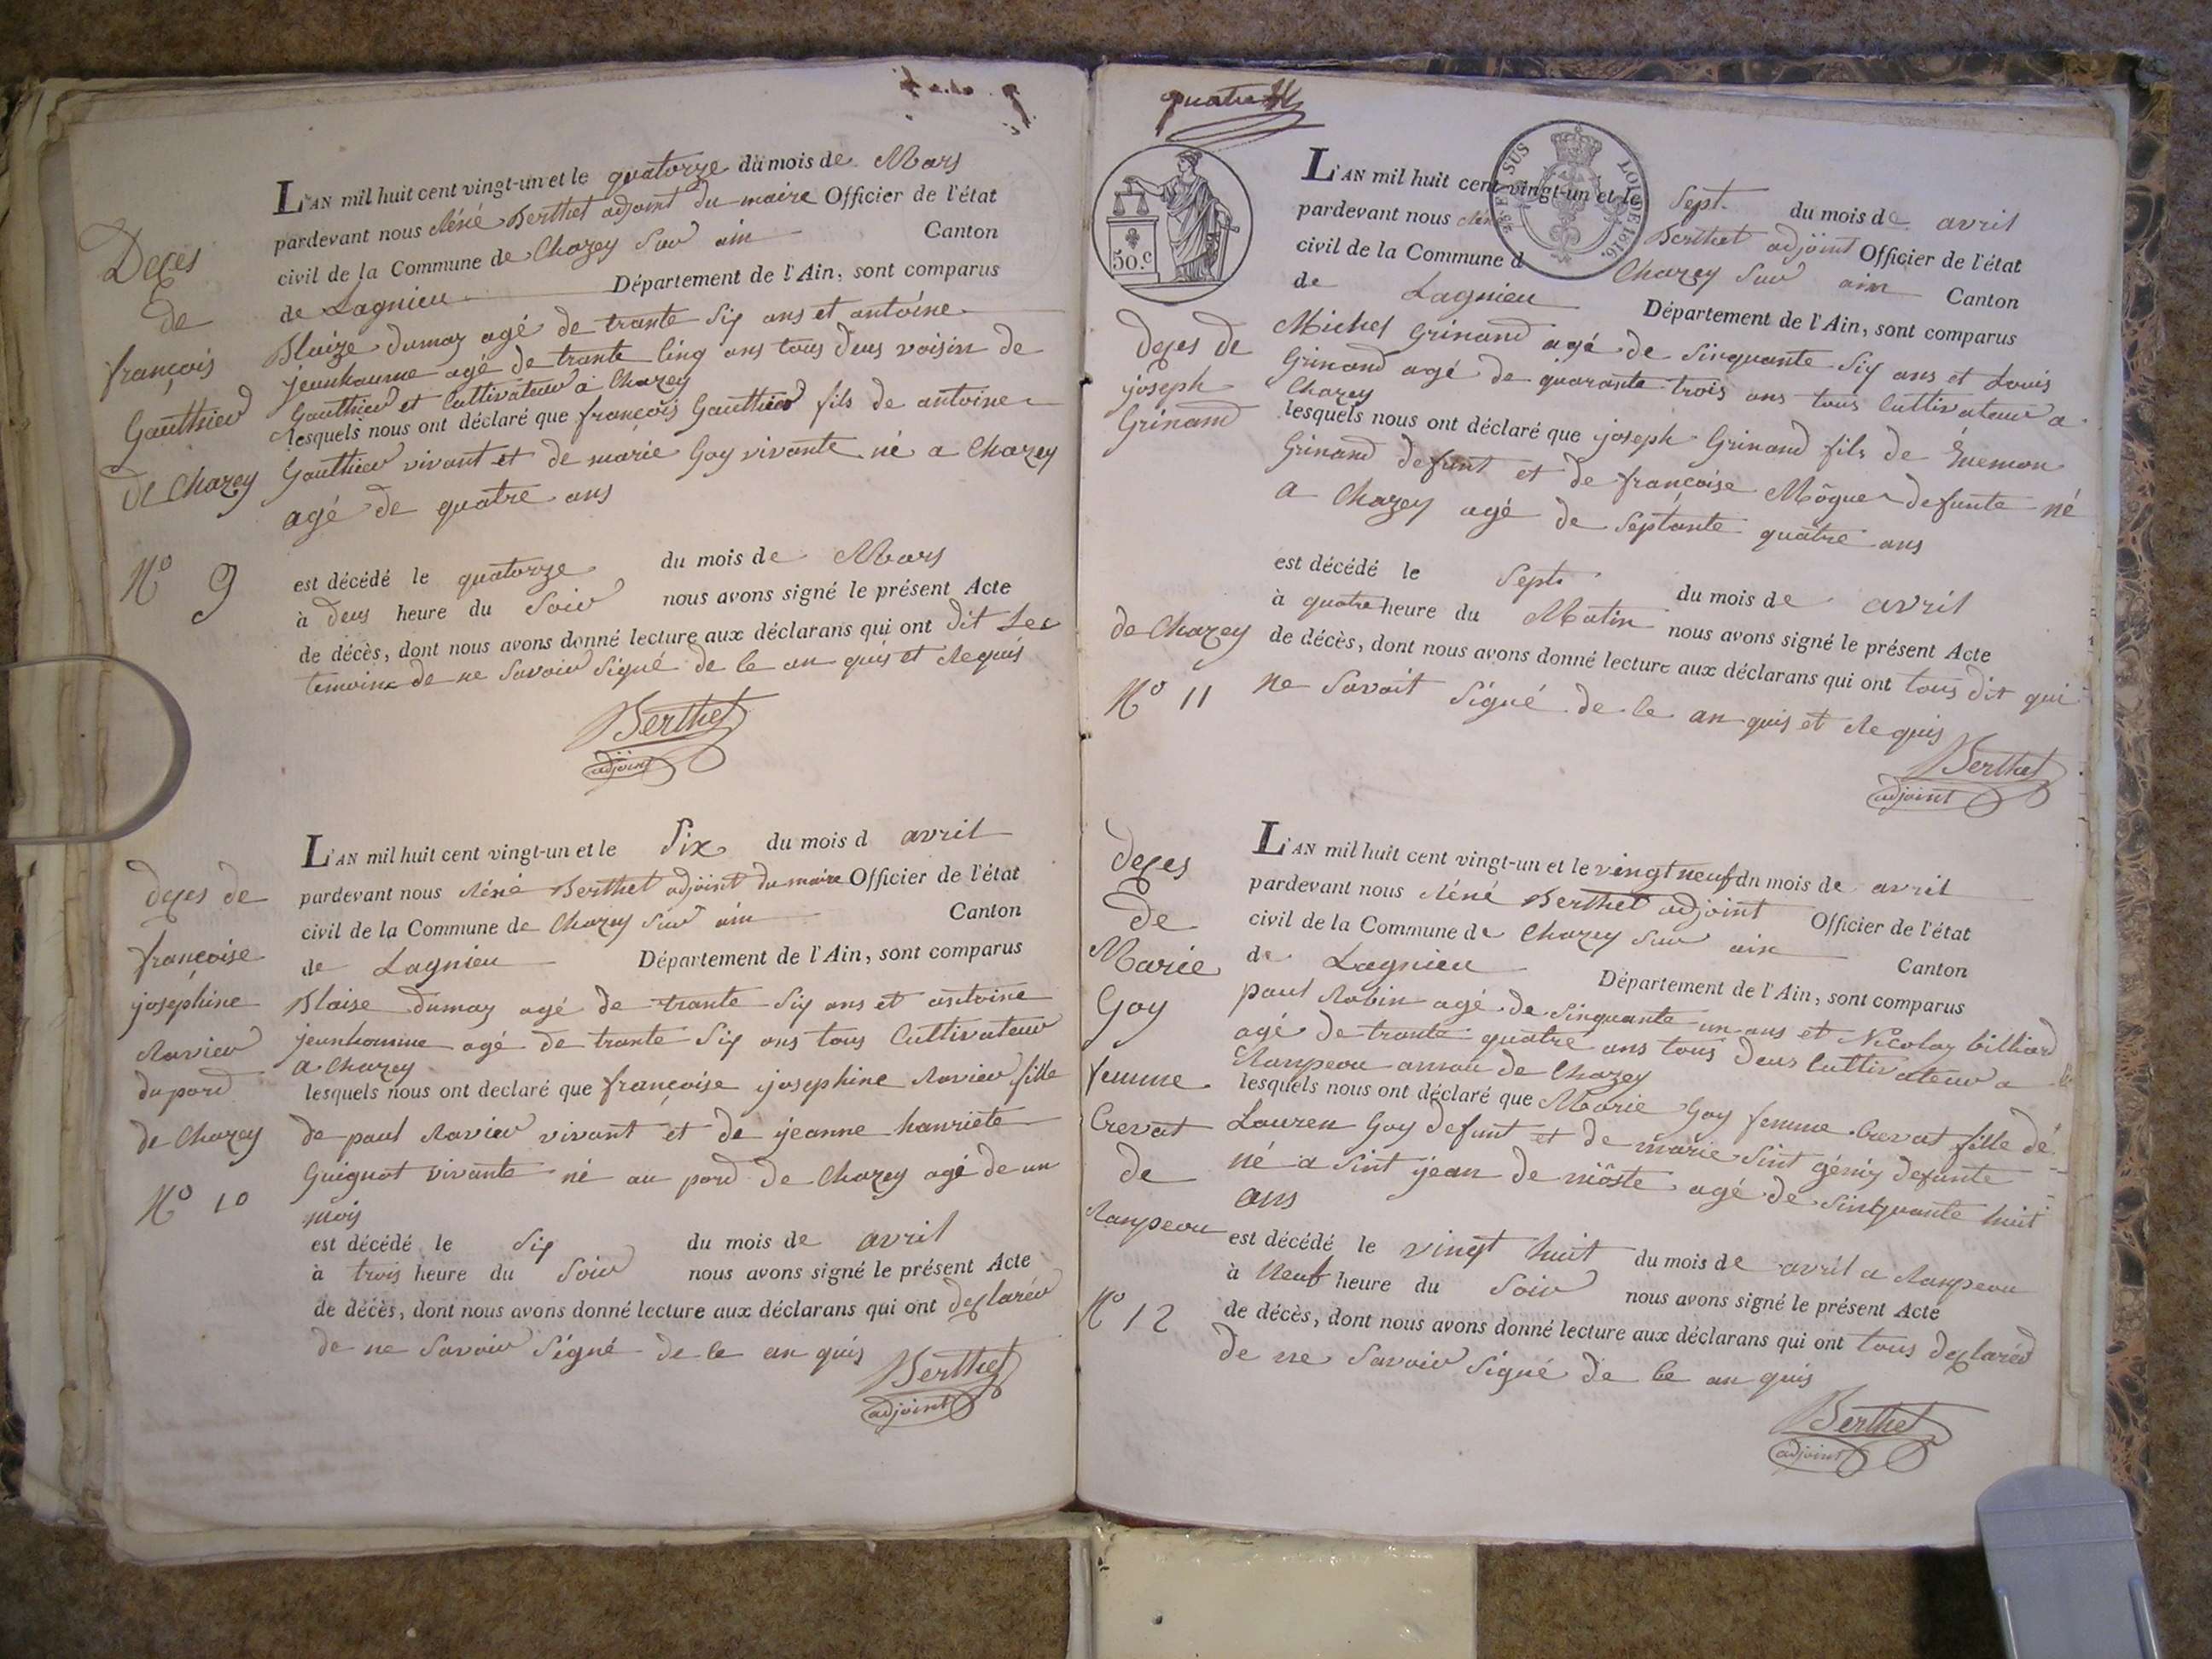 Deces
de
françois
Gauthier
de Chazey
N° 9
L'AN mil huit cent vingt-un et le quatorze du mois de Mars
pardevant nous Réné Berthet adjoint du maire Officier de l'état
civil de la Commune de Chazey Sur ain Canton
de Lagnieu Département de l'Ain, sont comparus
Blaize dumas agé de trante Six ans et antoine
jeunhomme agé de trante Cinq ans tous deus voisin de
Gauthier et Cultivateur a Chazey
lesquels nous ont déclaré que françois Gauthier fils de antoine
Gauthier vivant et de marie Goy vivante né a Chazey
agé de quatre ans
est décédé le quatorze du mois de Mars
à deus heure du Soir nous avons signé le présent Acte
de décès, dont nous avons donné lecture aux déclarans qui ont dit Les
temoins de ne Savoir Signé de ce an quis et Requis
Berthet
adjoint
deces de
françoise
josephine
Ravier
du pord
de Chazey
N° 10
L'AN mil huit cent vingt-un et le Six du mois d avril
pardevant nous Réné Berthet adjoint du maire Officier de l'état
civil de la Commune de Chazey Sur ain Canton
de Lagnieu Département de l'Ain, sont comparus
Blaise dumas agé de trante Six ans et antoine
jeunhomme agé de trante Six ans tous Cultivateur
a Chazey
lesquels nous ont declaré que françoise josephine Ravier fille
de paul Ravier vivant et de jeanne hanriete
Guignot vivante né au pord de Chazey agé de un
mois
est décédé le Six du mois de avril
à trois heure du Soir nous avons signé le présent Acte
de décès, dont nous avons donné lecture aux déclarans qui ont declaréd
de ne Savoir Signé de ce an quis
Berthet
adjoint
quatre
50.c
LOI DE 1816.
deces de
joseph
Grinand
de Chazey
N° 11
L'AN mil huit cent vingt-un et le Sept du mois de avril
pardevant nous Réné Berthet adjoint Officier de l'état
civil de la Commune d Chazey Sur ain Canton
de Lagnieu Département de l'Ain, sont comparus
Michel Grinand agé de Sinquante Six ans et Louis
Grinand agé de quarante trois ans tous Cultivateur a
Chazey
lesquels nous ont déclaré que joseph Grinand fils de Enemon
Grinand defunt et de françoise Môgue defunte né
a Chazey agé de Septante quatre ans
est décédé le Sept du mois de avril
à quatre heure du Matin nous avons signé le présent Acte
de décès, dont nous avons donné lecture aux déclarans qui ont tous dit qui
ne Savoit Signé de ce an quis et Requis
Berthet
adjoint
deces
de
Marie
Goy
femme
Crevat
de
Ranpeou
N° 12
L'AN mil huit cent vingt-un et le vingt neuf du mois de avril
pardevant nous Réné Berthet adjoint Officier de l'état
civil de la Commune de Chazey Sur ain Canton
de Lagnieu Département de l'Ain, sont comparus
paul Robin agé de Sinquante un ans et Nicolas billiard
agé de trante quatre ans tous deus Cultivateur a
Ranpeou amau de Chazey
lesquels nous ont déclaré que Marie Goy femme Crevat fille de
Lauren Goy defunt et de marie Sint géniy defunte
né a Sint jean de niôste agé de Sinquante huit
ans
est décédé le vingt huit du mois de avril a Ranpeou
à Neuf heure du Soir nous avons signé le présent Acte
de décès, dont nous avons donné lecture aux déclarans qui ont tous declaréd
de ne Savoir Signé de ce an quis
Berthet
adjoint